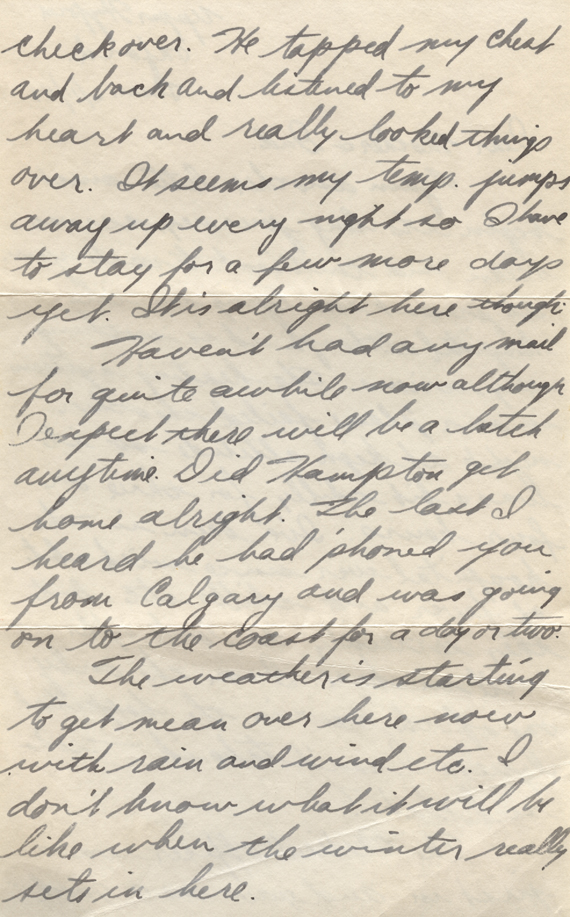 checkover. He tapped my chest
and back and listened to my
heart and really looked things
over. It seems my temp. jumps
away up every night so I have
to stay for a few more days
yet. It is alright here though.
Haven't had any mail
for quite awhile now although
I expect there will be a batch
anytime. Did Hampton get
home alright. The last I
heard he had 'phoned you
from Calgary and was going
on to the coast for a day or two.
The weather is starting
to get mean over here now
with rain and wind etc. I
don't know what it will be
like when the winter really
sets in here.